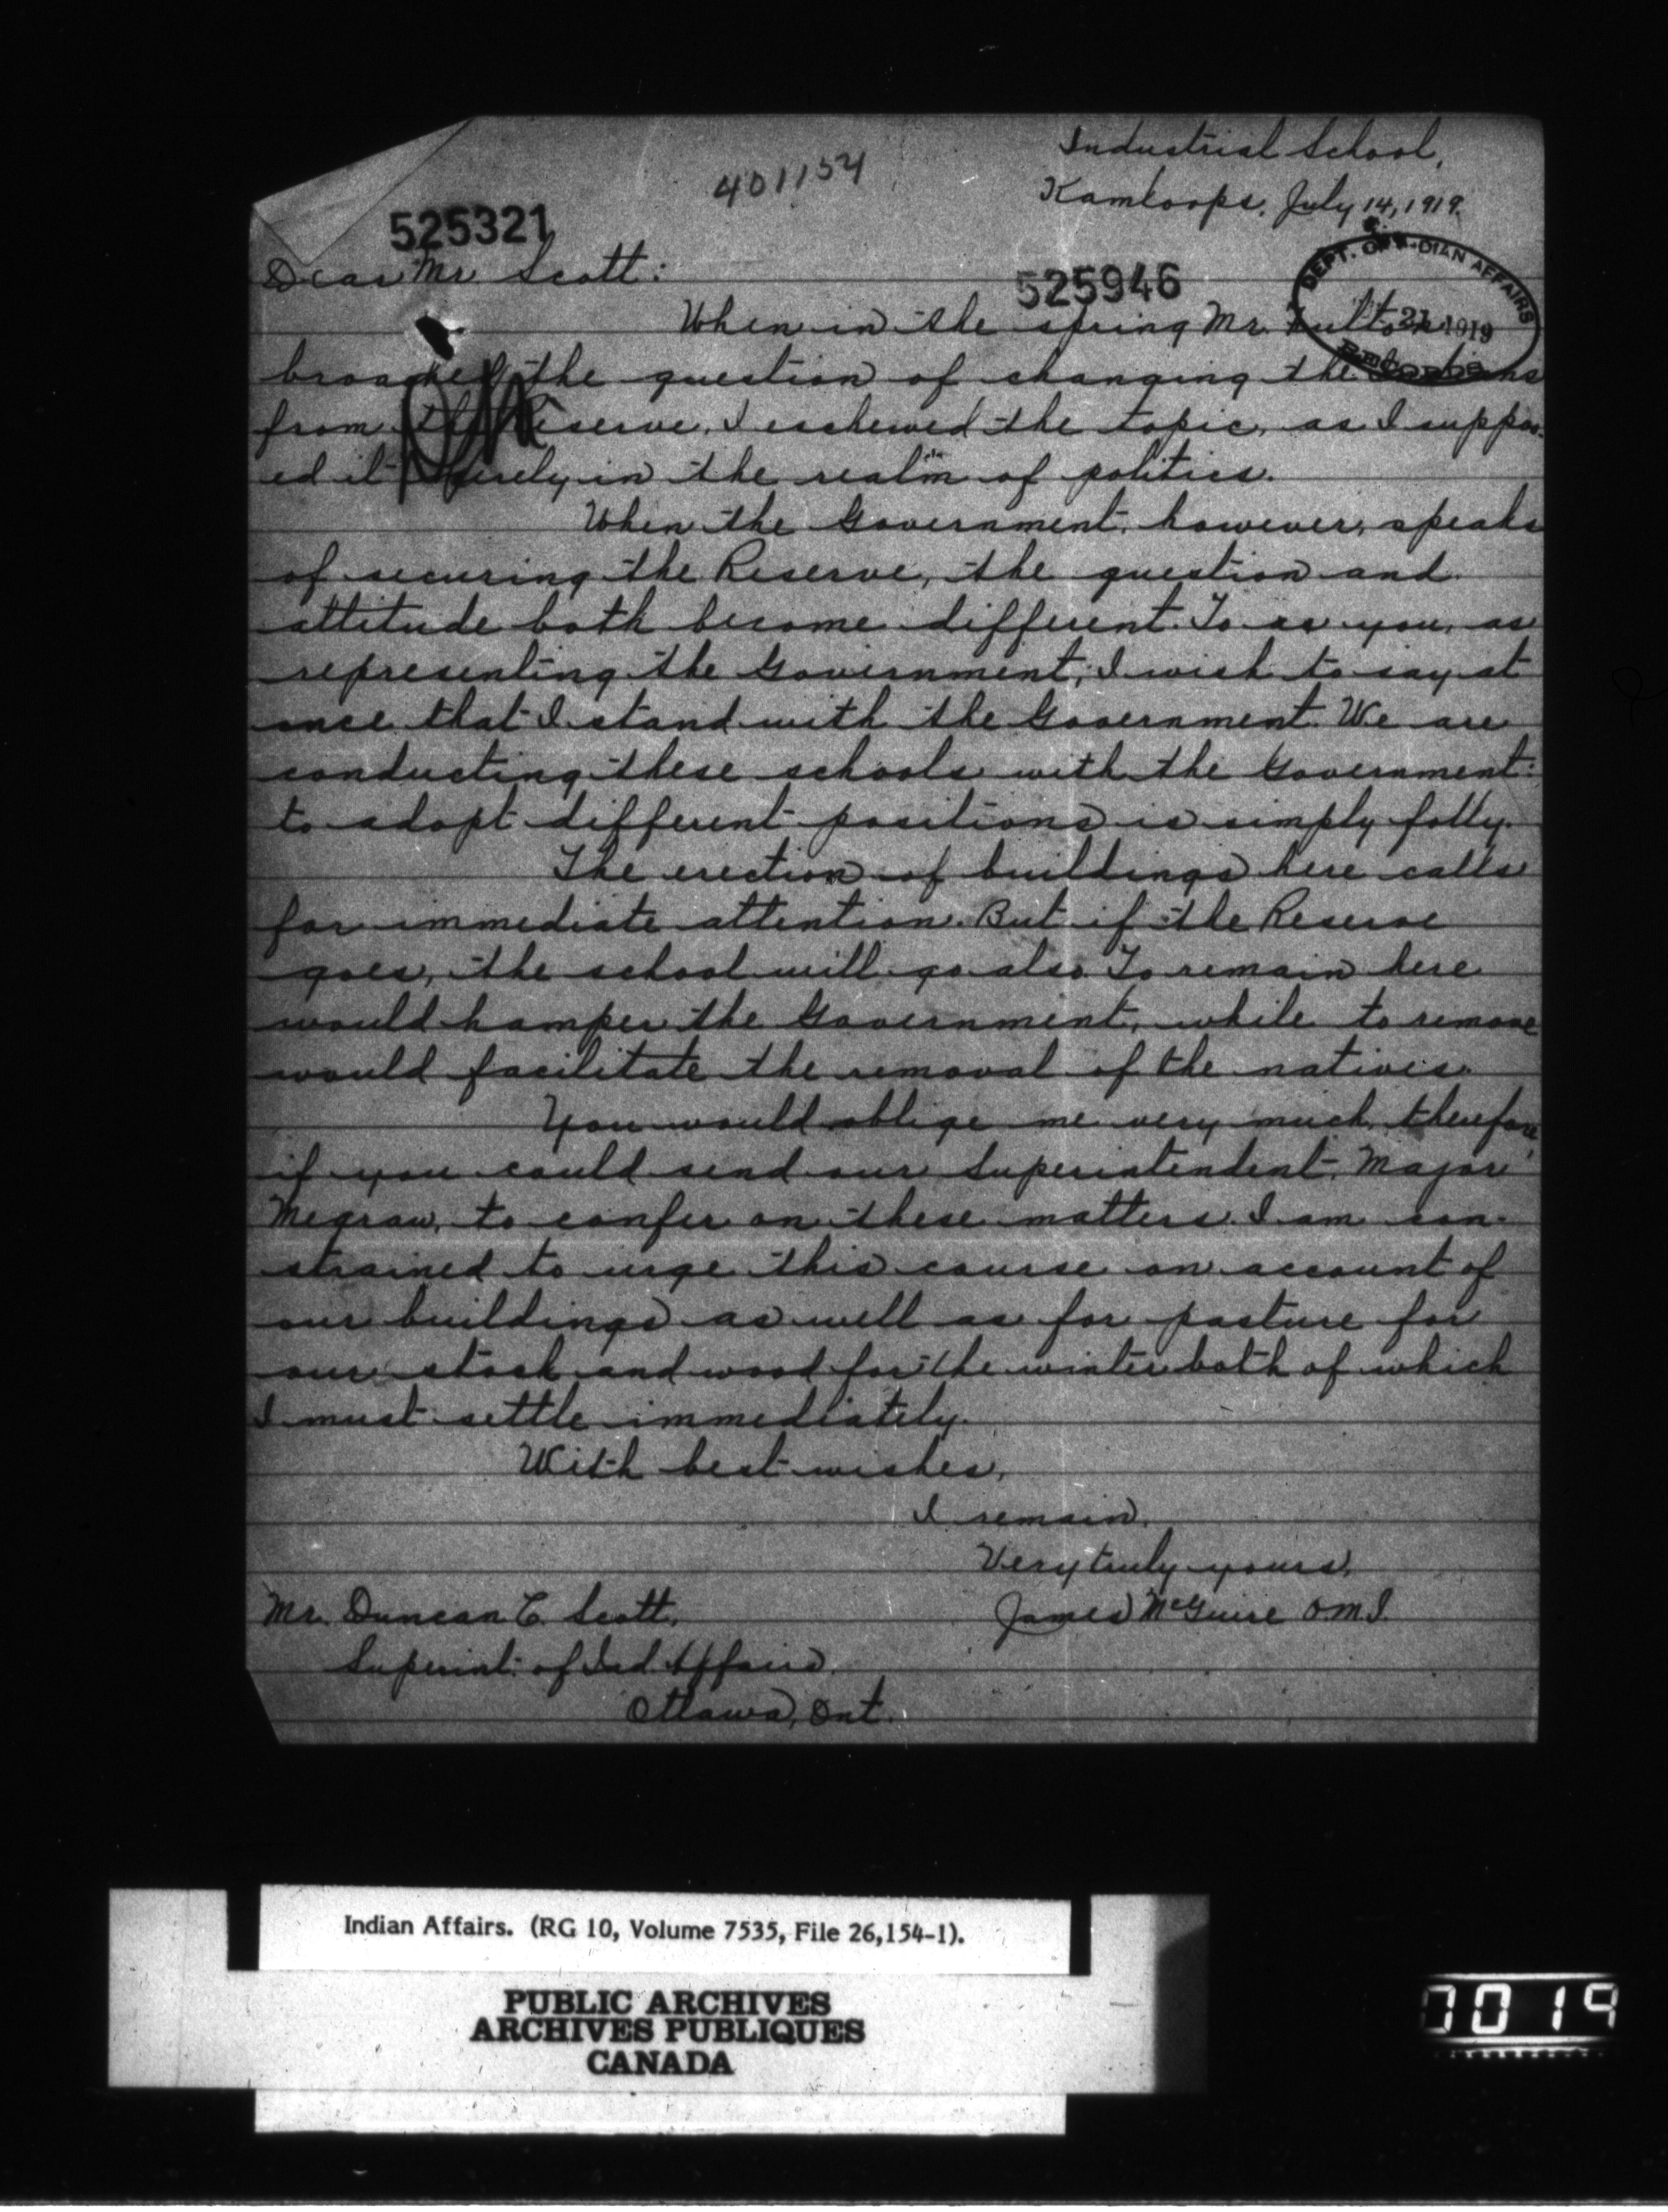 Industrial School,
401154
Kamloops, July 14, 1919.
525321
Dear Mr. Scott:
525946
DEPT. OF INDIAN AFFAIRS
21 1919
RECORDS
When in the spring Mr. Fulton
broached the question of changing the
from the Reserve, I eschewed the topic, as I suppos-
ed it merely in the realm of politics.
When the Government, however, speaks
of securing the Reserve, the question and
attitude both become different. To as you, as
representing the Government, I wish to say at
once that I stand with the Government. We are
conducting these schools with the Government:
to adopt different positions is simply folly.
The erection of buildings here calls
for immediate attention. But if the Reserve
goes, the school will go also. To remain here
would hamper the Government, while to remove
would facilitate the removal of the natives.
You would oblige me very much, therefore,
if you could send our Superintendent, Major
Megraw, to confer on these matters. I am con-
strained to urge this course on account of
our buildings as well as for pasture for
our stock and wood for the winter both of which
I must settle immediately.
With best wishes,
I remain,
Very truly yours,
James McGuire O.M.I.
Mr. Duncan C. Scott,
Superint. of Ind. Affairs.
Ottawa, Ont.
Indian Affairs. (RG 10, Volume 7535, File 26,154-1).
PUBLIC ARCHIVES
ARCHIVES PUBLIQUES
CANADA
0019